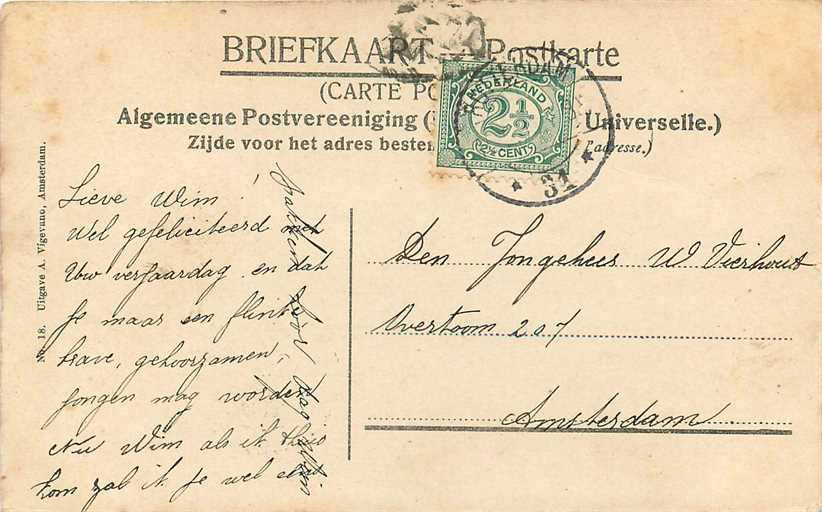 BRIEFKAART — Postkarte
(CARTE PO
Algemeene Postvereeniging ( Universelle.)
Zijde voor het adres beste d'adresse.)
NEDERLAND
2½
2½ CENT
31
No. 18. Uitgave A. Vigevano, Amsterdam.
Lieve Wim!
Wel gefeliciteerd met
Uw verjaardag en dat
je maar een flink
brave, gehoorzamen,
jongen mag worden
Nu Wim als ik thuis
kom zal ik je wel eens
pakken hoor dag Wim
Den Jongeheer W Vierhout
Overtoom 207
Amsterdam